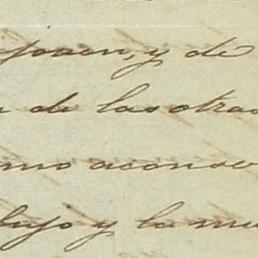 poseen, y de
a de las otras
mo aconse
bajo y la mu